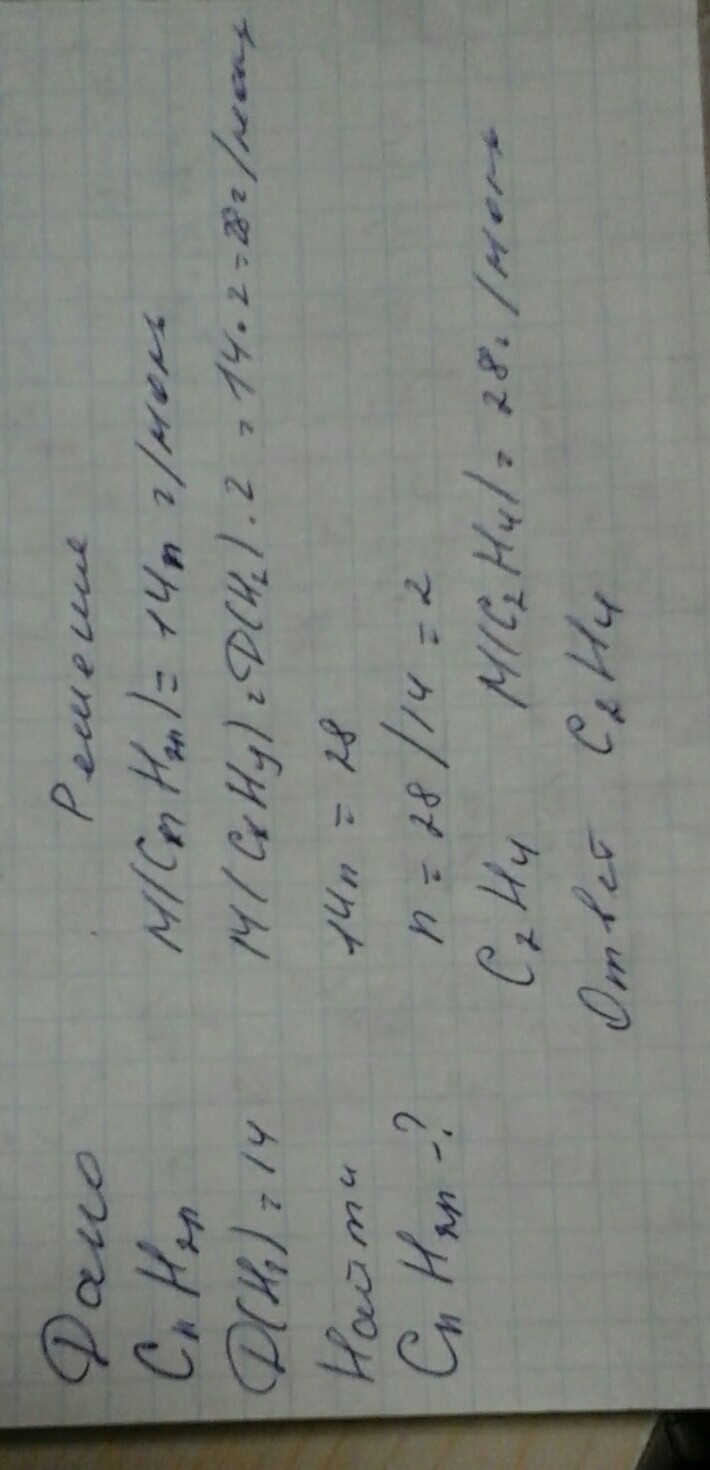 Дано
CnH2n
D(H2) = 14
Найти
CnH2n -?
Решение
M(CnH2n) = 14n г/моль
M(CxHy) = D(H2) · 2 = 14 · 2 = 28 г/моль
14n = 28
n = 28/14 = 2
C2H4 M(C2H4) = 28 г/моль
Ответ C2H4